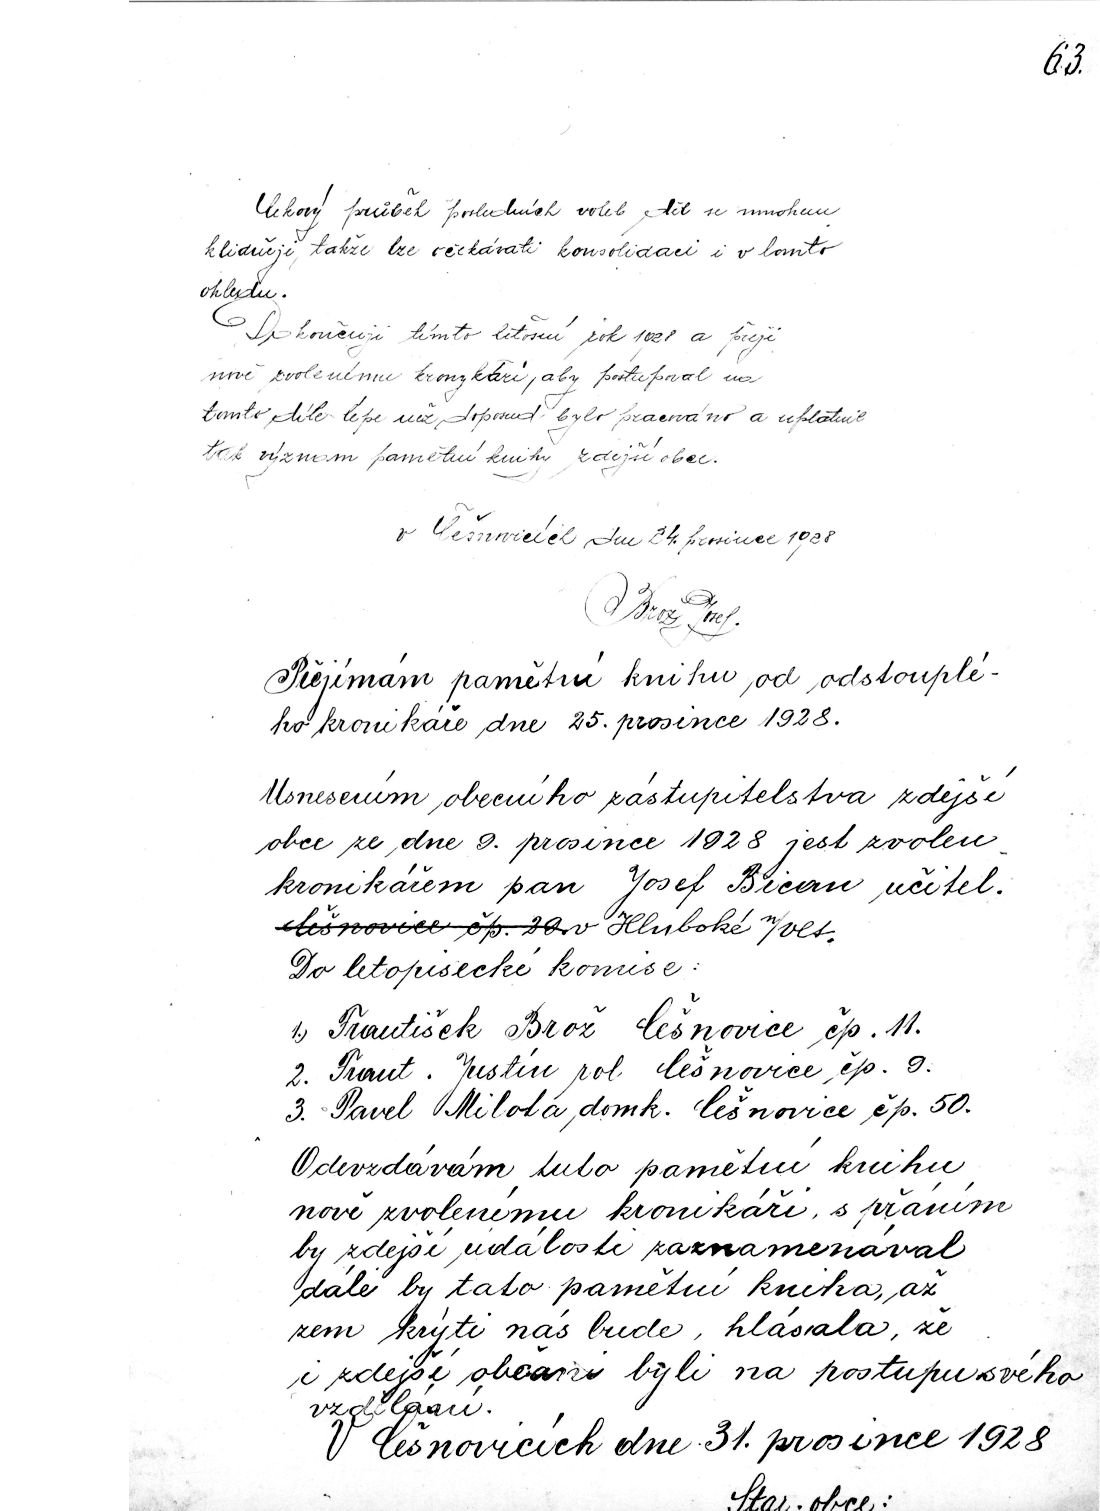 63.
Takový průběh posledních voleb děl se mnohem
klidněji, takže lze očekávati konsolidaci i v tomto
ohledu.
Dokončuji tímto letošní rok 1928 a přeji
nově zvolenému kronykáři, aby postupoval na
tomto díle lépe než doposud bylo pracováno a uplatnil
tak význam pamětní knihy zdejší obce.
v Češnovicích dne 24. prosince 1928
Brož Josef.
Přejímám pamětní knihu od odstouplé-
ho kronikáře dne 25. prosince 1928.
Usnesením obecního zástupitelstva zdejší
obce ze dne 9. prosince 1928 jest zvolen
kronikářem pan Josef Bican učitel.
Češnovice čp. 20. v Hluboké n/vlt.
Do letopisecké komise:
1.) František Brož Češnovice čp. 11.
2. Frant. Justin rol. Češnovice čp. 9.
3. Pavel Milota domk. Češnovice čp. 50.
Odevzdávám tuto pamětní knihu
nově zvolenému kronikáři, s přáním
by zdejší události zaznamenával
dále by tato pamětní kniha, až
zem krýti nás bude, hlásala, že
i zdejší občani byli na postupu svého
vzdělání.
V Češnovicích dne 31. prosince 1928
Star. obce: